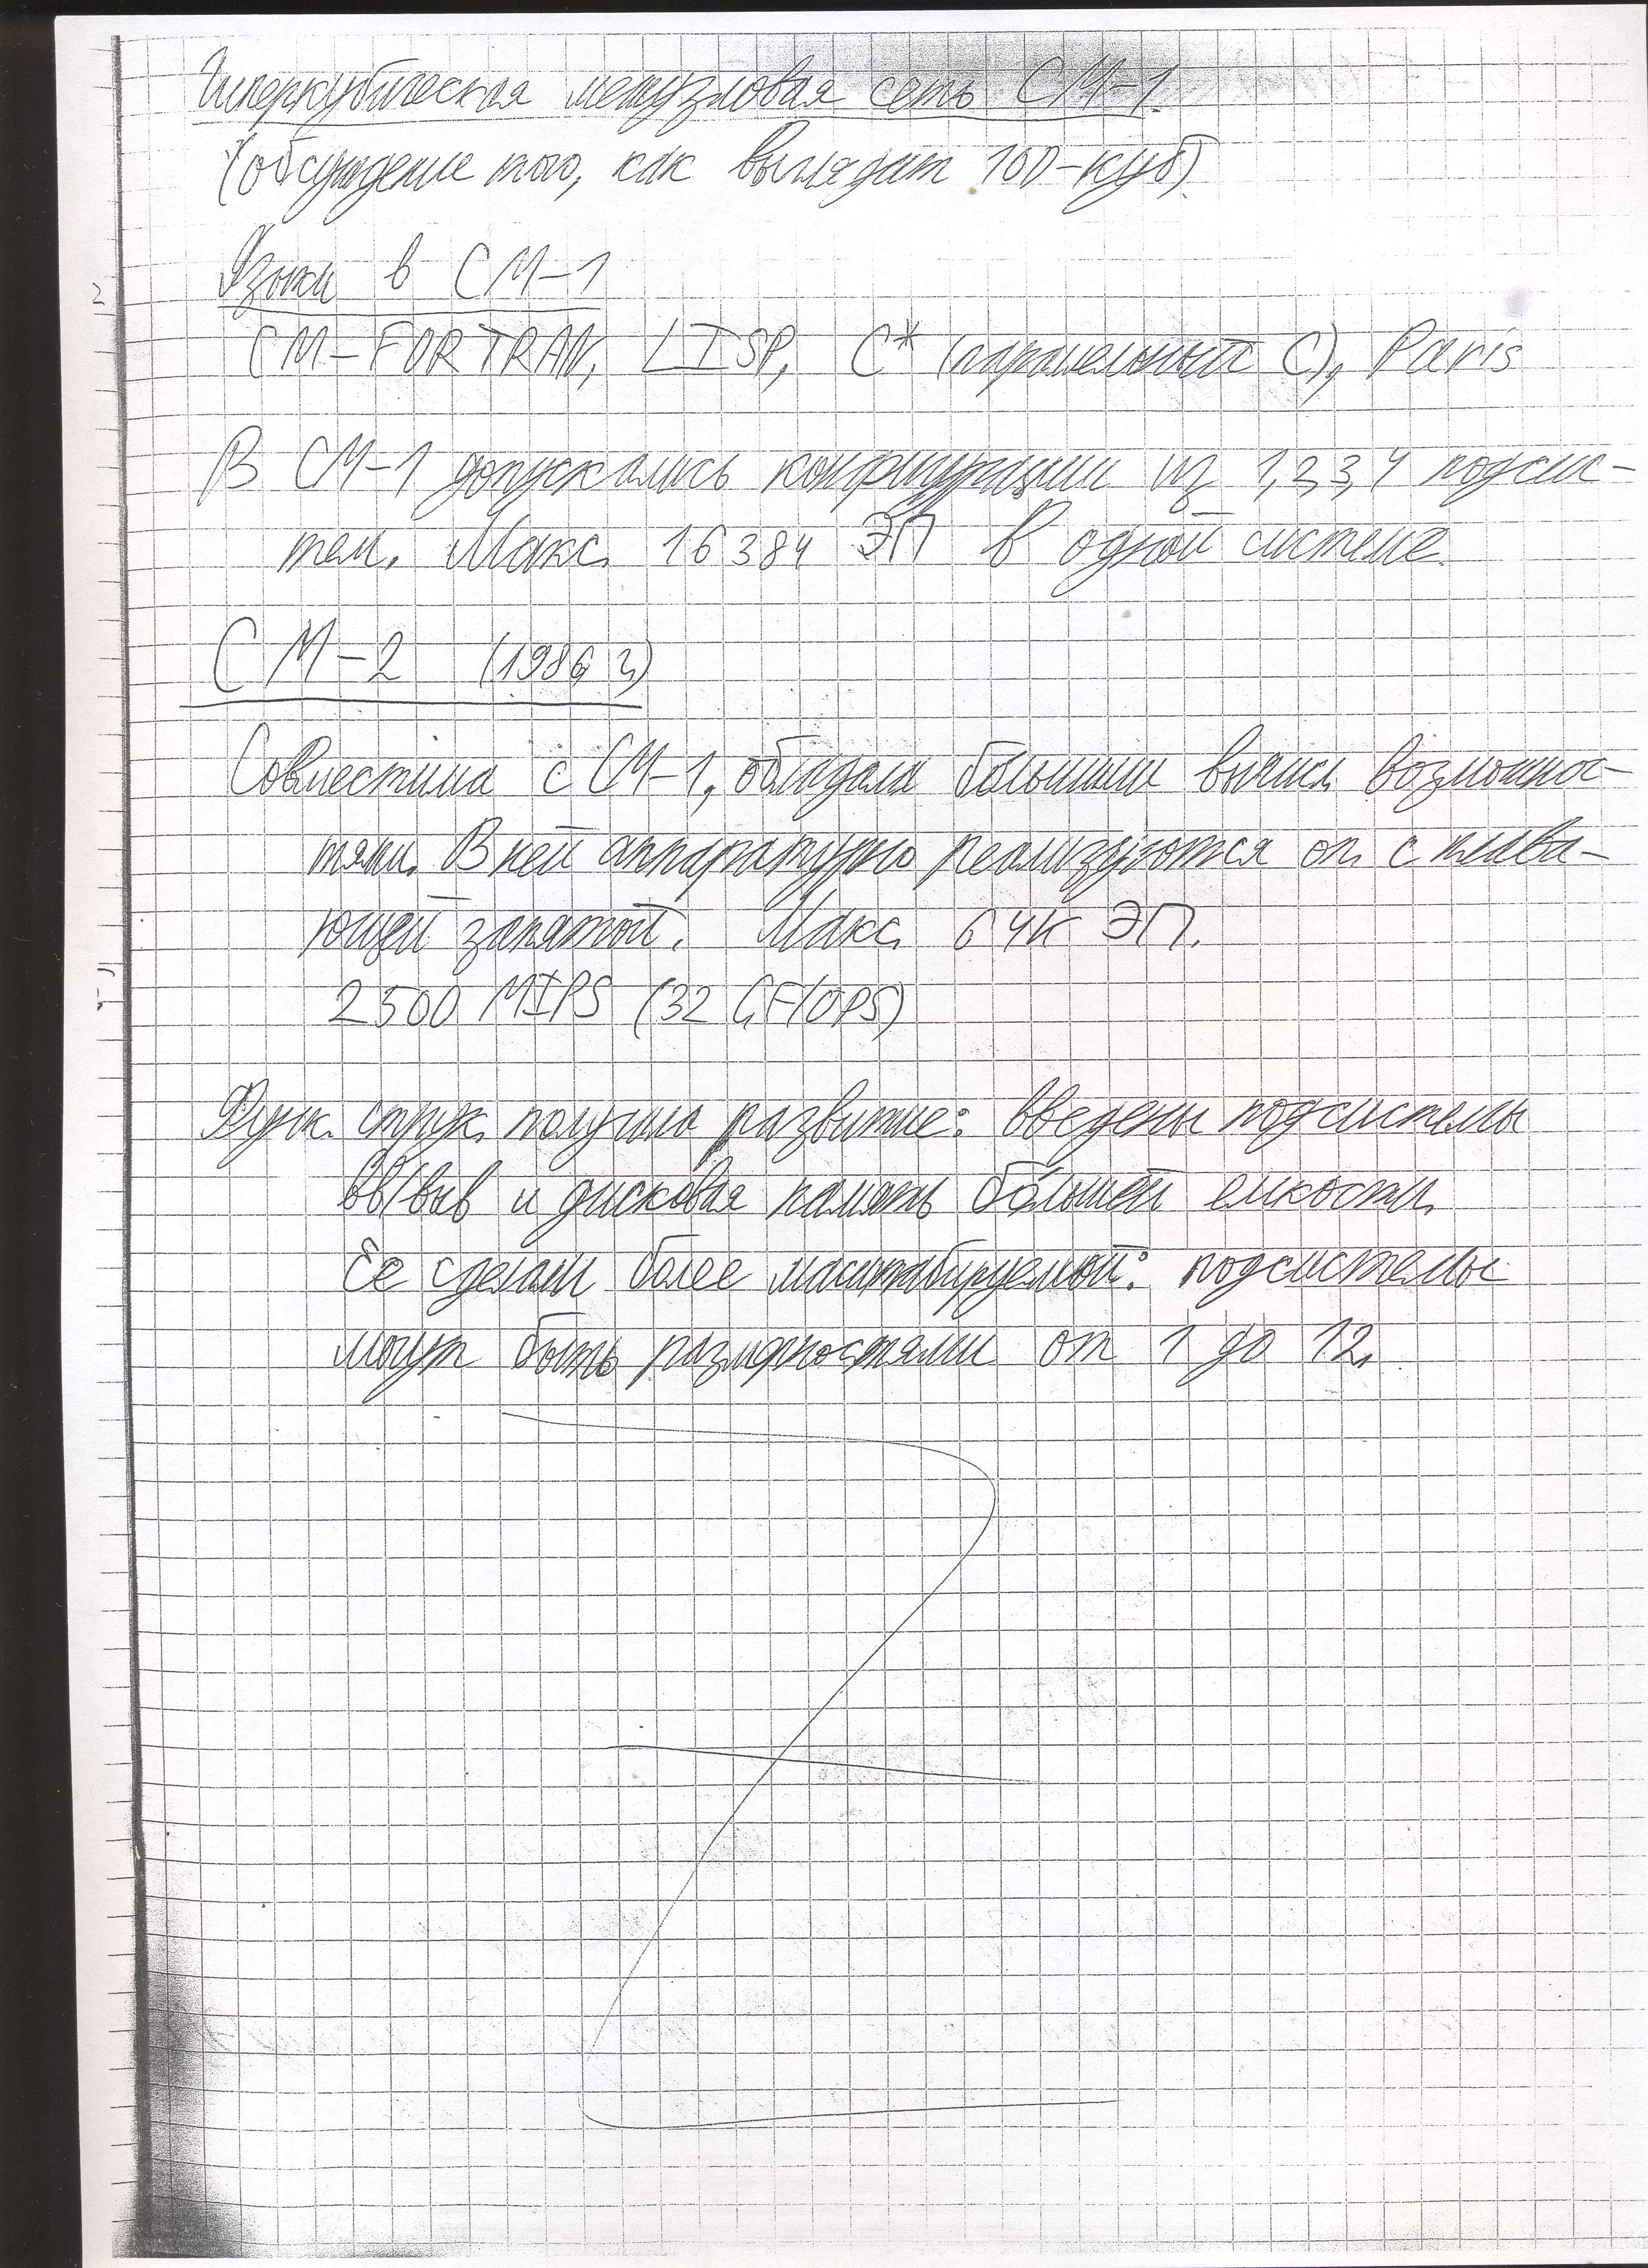 Гиперкубическая межузловая сеть СМ-1.
(обсуждение того, как выглядит 10D-куб)
Языки в СМ-1
CM-FORTRAN, LISP, C* (параллельный C), Paris
В СМ-1 допускались конфигурации из 1, 2, 3, 4 подсис-
тем. Макс. 16384 ЭП в одной системе.
СМ-2 (1986 г.)
Совместима с СМ-1, обладала бо́льшими вычисл. возможнос-
тями. В ней аппаратурно реализуются оп. с плава-
ющей запятой. Макс. 64К ЭП.
2500 MIPS (32 GFlOPS)
Функ. струк. получила развитие: введены подсистемы
вв/выв и дисковая память бо́льшей емкости.
Ее сделали более масштабируемой: подсистемы
могут быть размерностями от 1 до 12.